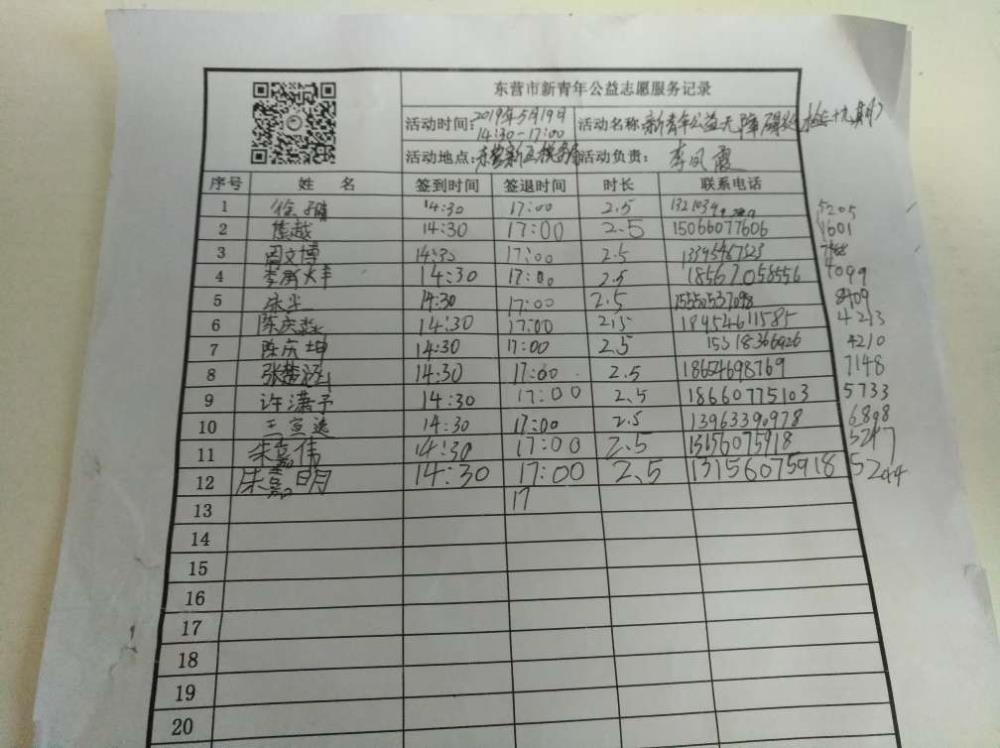 东营市新青年公益志愿服务记录
活动时间:2019年5月19日 14:30-17:00 活动名称:新青年公益无障碍
活动地点: 活动负责: 李凤霞
序号 姓 名 签到时间 签退时间 时长 联系电话
1 徐 14:30 17:00 2.5 5205
2 熊越 14:30 17:00 2.5 15066077606 1601
3 周文博 14:30 17:00 2.5
4 14:30 17:00 2.5 18567058556 4099
5 14:30 17:00 2.5 15550537098 8409
6 陈庆 14:30 17:00 2.5 18954611585 4213
7 陈庆坤 14:30 17:00 2.5 15318366926 4210
8 张楚涵 14:30 17:00 2.5 18654698769 7148
9 许潇予 14:30 17:00 2.5 18660775103 5733
10 王宣 14:30 17:00 2.5 13963390978 6898
11 朱嘉伟 14:30 17:00 2.5 13156075918 5247
12 朱嘉明 14:30 17:00 2.5 13156075918 5244
13 17
14
15
16
17
18
19
20